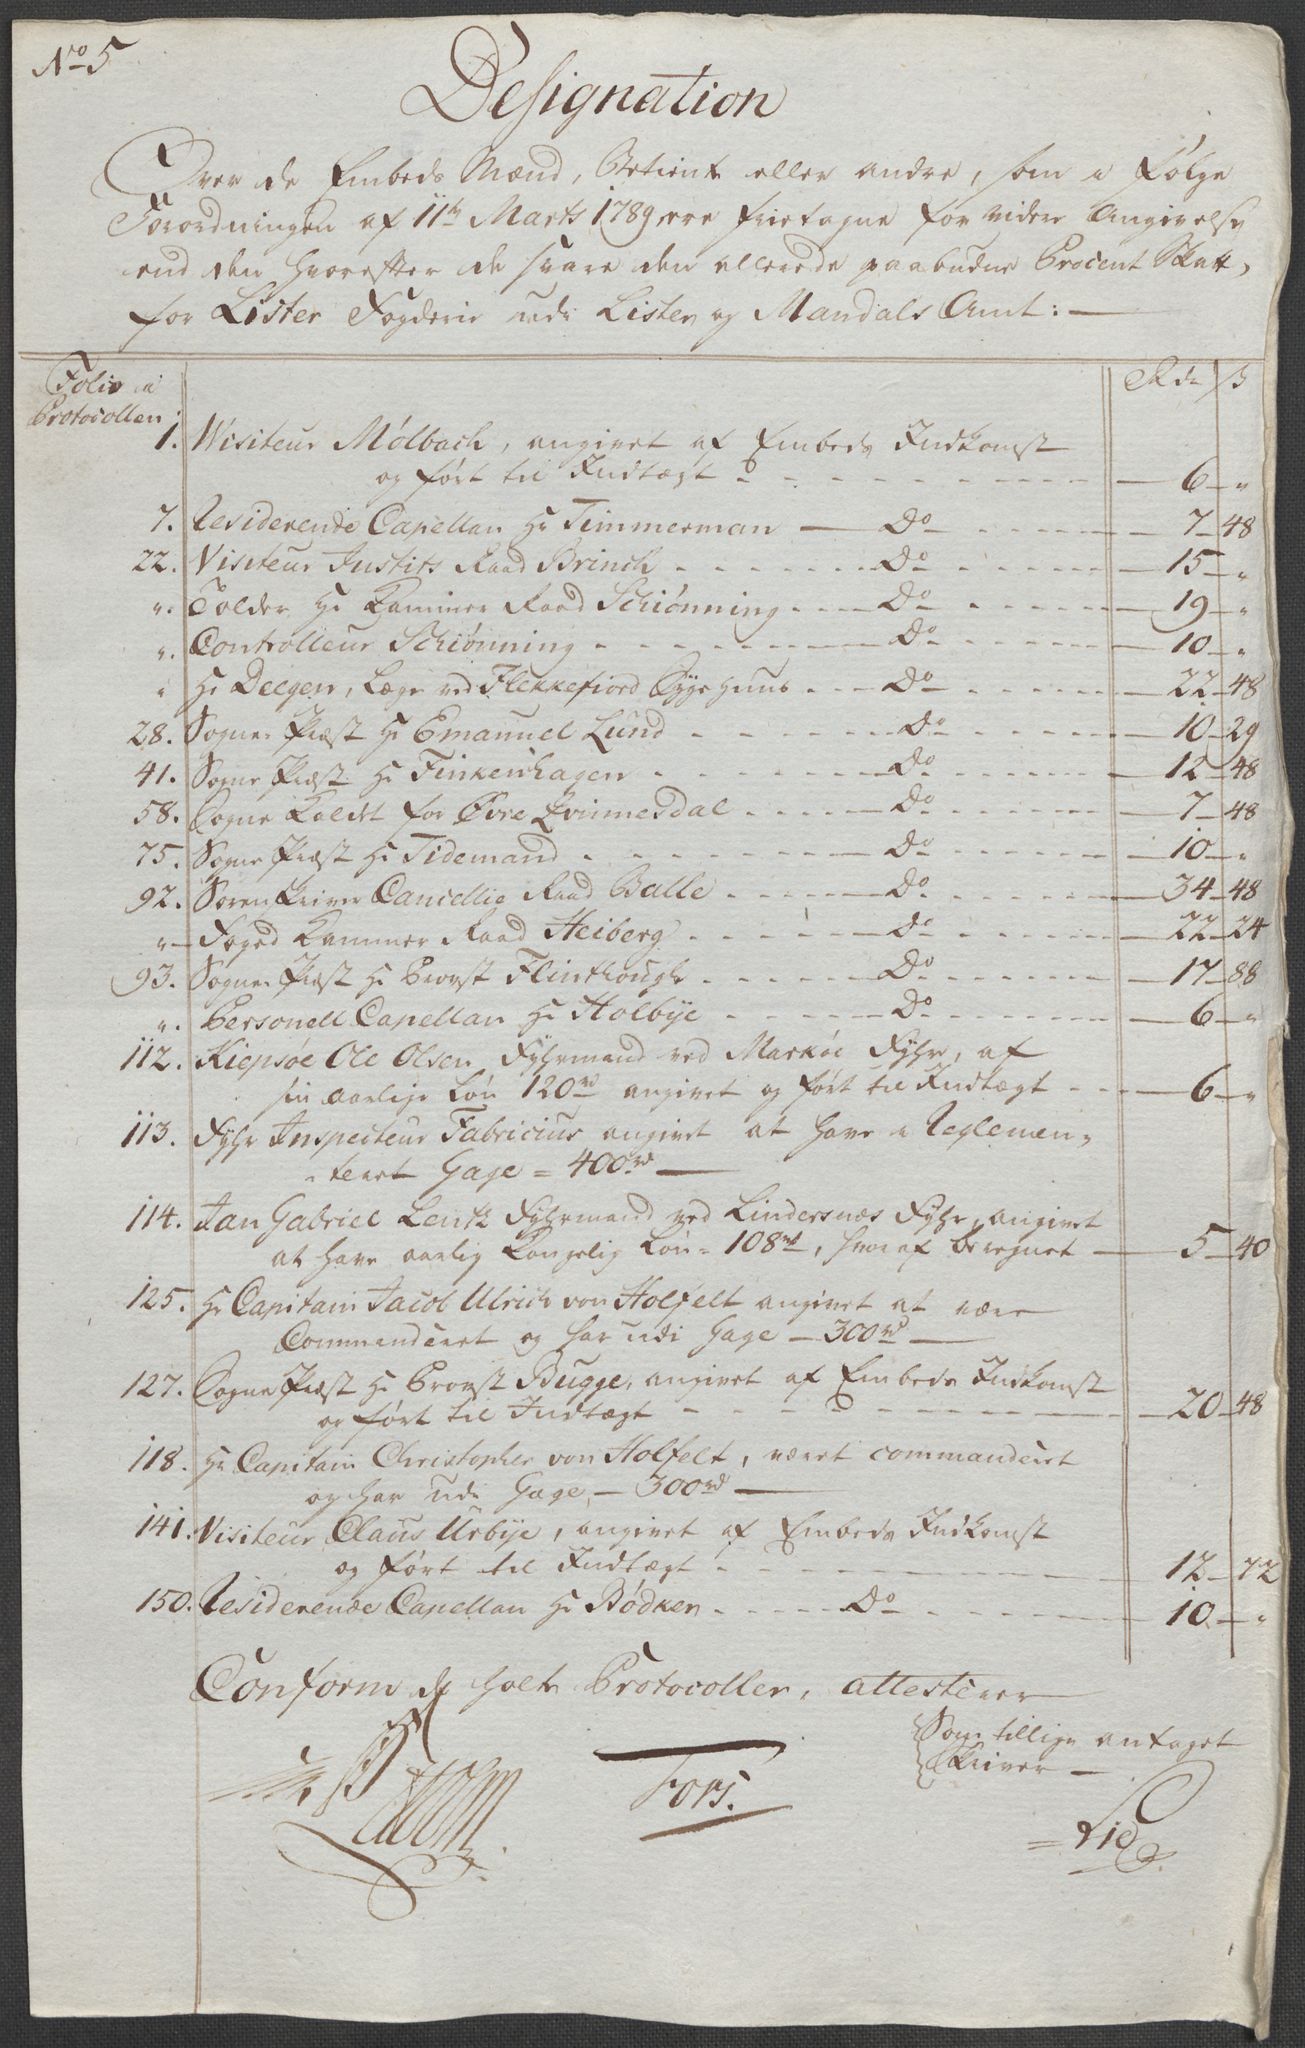 No 5
Designation
Over de Embeds Mænd, Betient eller andre, som i Følge
Forordningen af 11te Marts 1789 ere fritagne for videre Angivelse
end den hvorefter de svare den allerede paabudne Procent Skatt,
for Lister Fogderie udi Lister og Mandals Amt:
Folio i
Protocollen
Rdr ß
1. Visiteur Mølbach, angivet af Embeds Indkomst
og ført til Indtægt - 6 - "
7. Residerende Capellan Hr Timmerman - Do - 7 - 48
22. Visiteur Justits Raad Brinch - Do - 15 - "
". Tolder Hr Kammer Raad Schiønning - Do - 19 - "
". Controlleur Schiønning - Do - 10 - "
" Hr Deegen, Læge ved Flekkefiord Sygehuus - Do - 22 - 48
28. Sogne Præst Hr Emanuel Lund - Do - 10 - 29
41. Sogne Præst Hr Finkenhagen - Do - 12 - 48
58. Sogne Kaldet for Øvre Qvinnesdal - Do - 7 - 48
75. Sogne Præst Hr Tidemand - Do - 10 - "
92. Sorenskriver Cancellie Raad Balle - Do - 34 - 48
" - Foged Kammer Raad Heiberg - Do - 22 - 24
93. Sogne Præst Hr Provst Flinthough - Do - 17 - 88
". Personell Capellan Hr Holbye - Do - 6 - "
112. Kiepsøe Ole Olsen Fyhrmand ved Markøe Fyhr, af
sin aarlige Løn 120 rd angivet og ført til Indtægt - 6 - "
113. Fyhr Inspecteur Fabricius angivet at have i Reglemen-
teret Gage = 400 rd
114. Jan Gabriel Lentz Fyhrmand ved Lindersnæs Fyhr, angivet
at have aarlig Kongelig Løn = 108 rd, hvoraf beregnet - 5 - 40
125. Hr Capitain Jacob Ulrich von Holfelt angivet at være
Commanderet og har udi Gage - 300 rd
127. Sogne Præst Hr Provst Bugge, angivet af Embeds Indkomst
og ført til Indtægt - 20 - 48
118. Hr Capitain Christopher von Holfelt, været commanderet
og har udi Gage, - 300 rd
141. Visiteur Claus Urbye, angivet af Embeds Indkomst
og ført til Indtægt - 12 - 72
150. Residerende Capellan Hr Bødker - Do - 10 - "
Conform de holte Protocoller, attesterer
Som tillige antaget
Skriver -